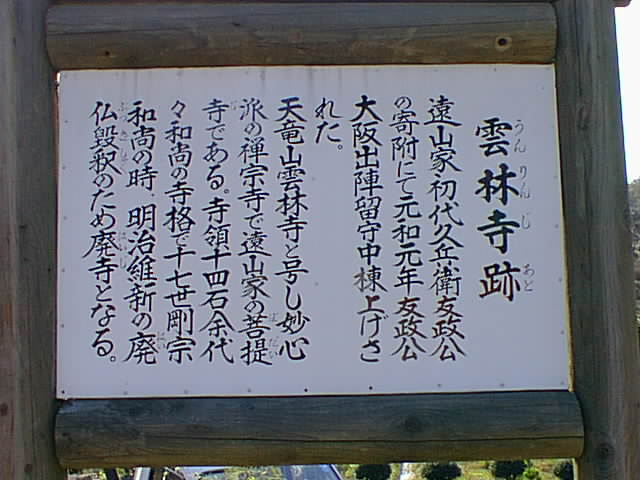 雲林寺跡
遠山家初代久兵衛友政公
の寄附にて元和元年友政公
大阪出陣留守中棟上げさ
れた。
天竜山雲林寺と号し妙心
派の禅宗寺で遠山家の菩提
寺である。寺領十四石余代
々和尚の寺格で十七世剛宗
和尚の時明治維新の廃
仏毀釈のため廃寺となる。